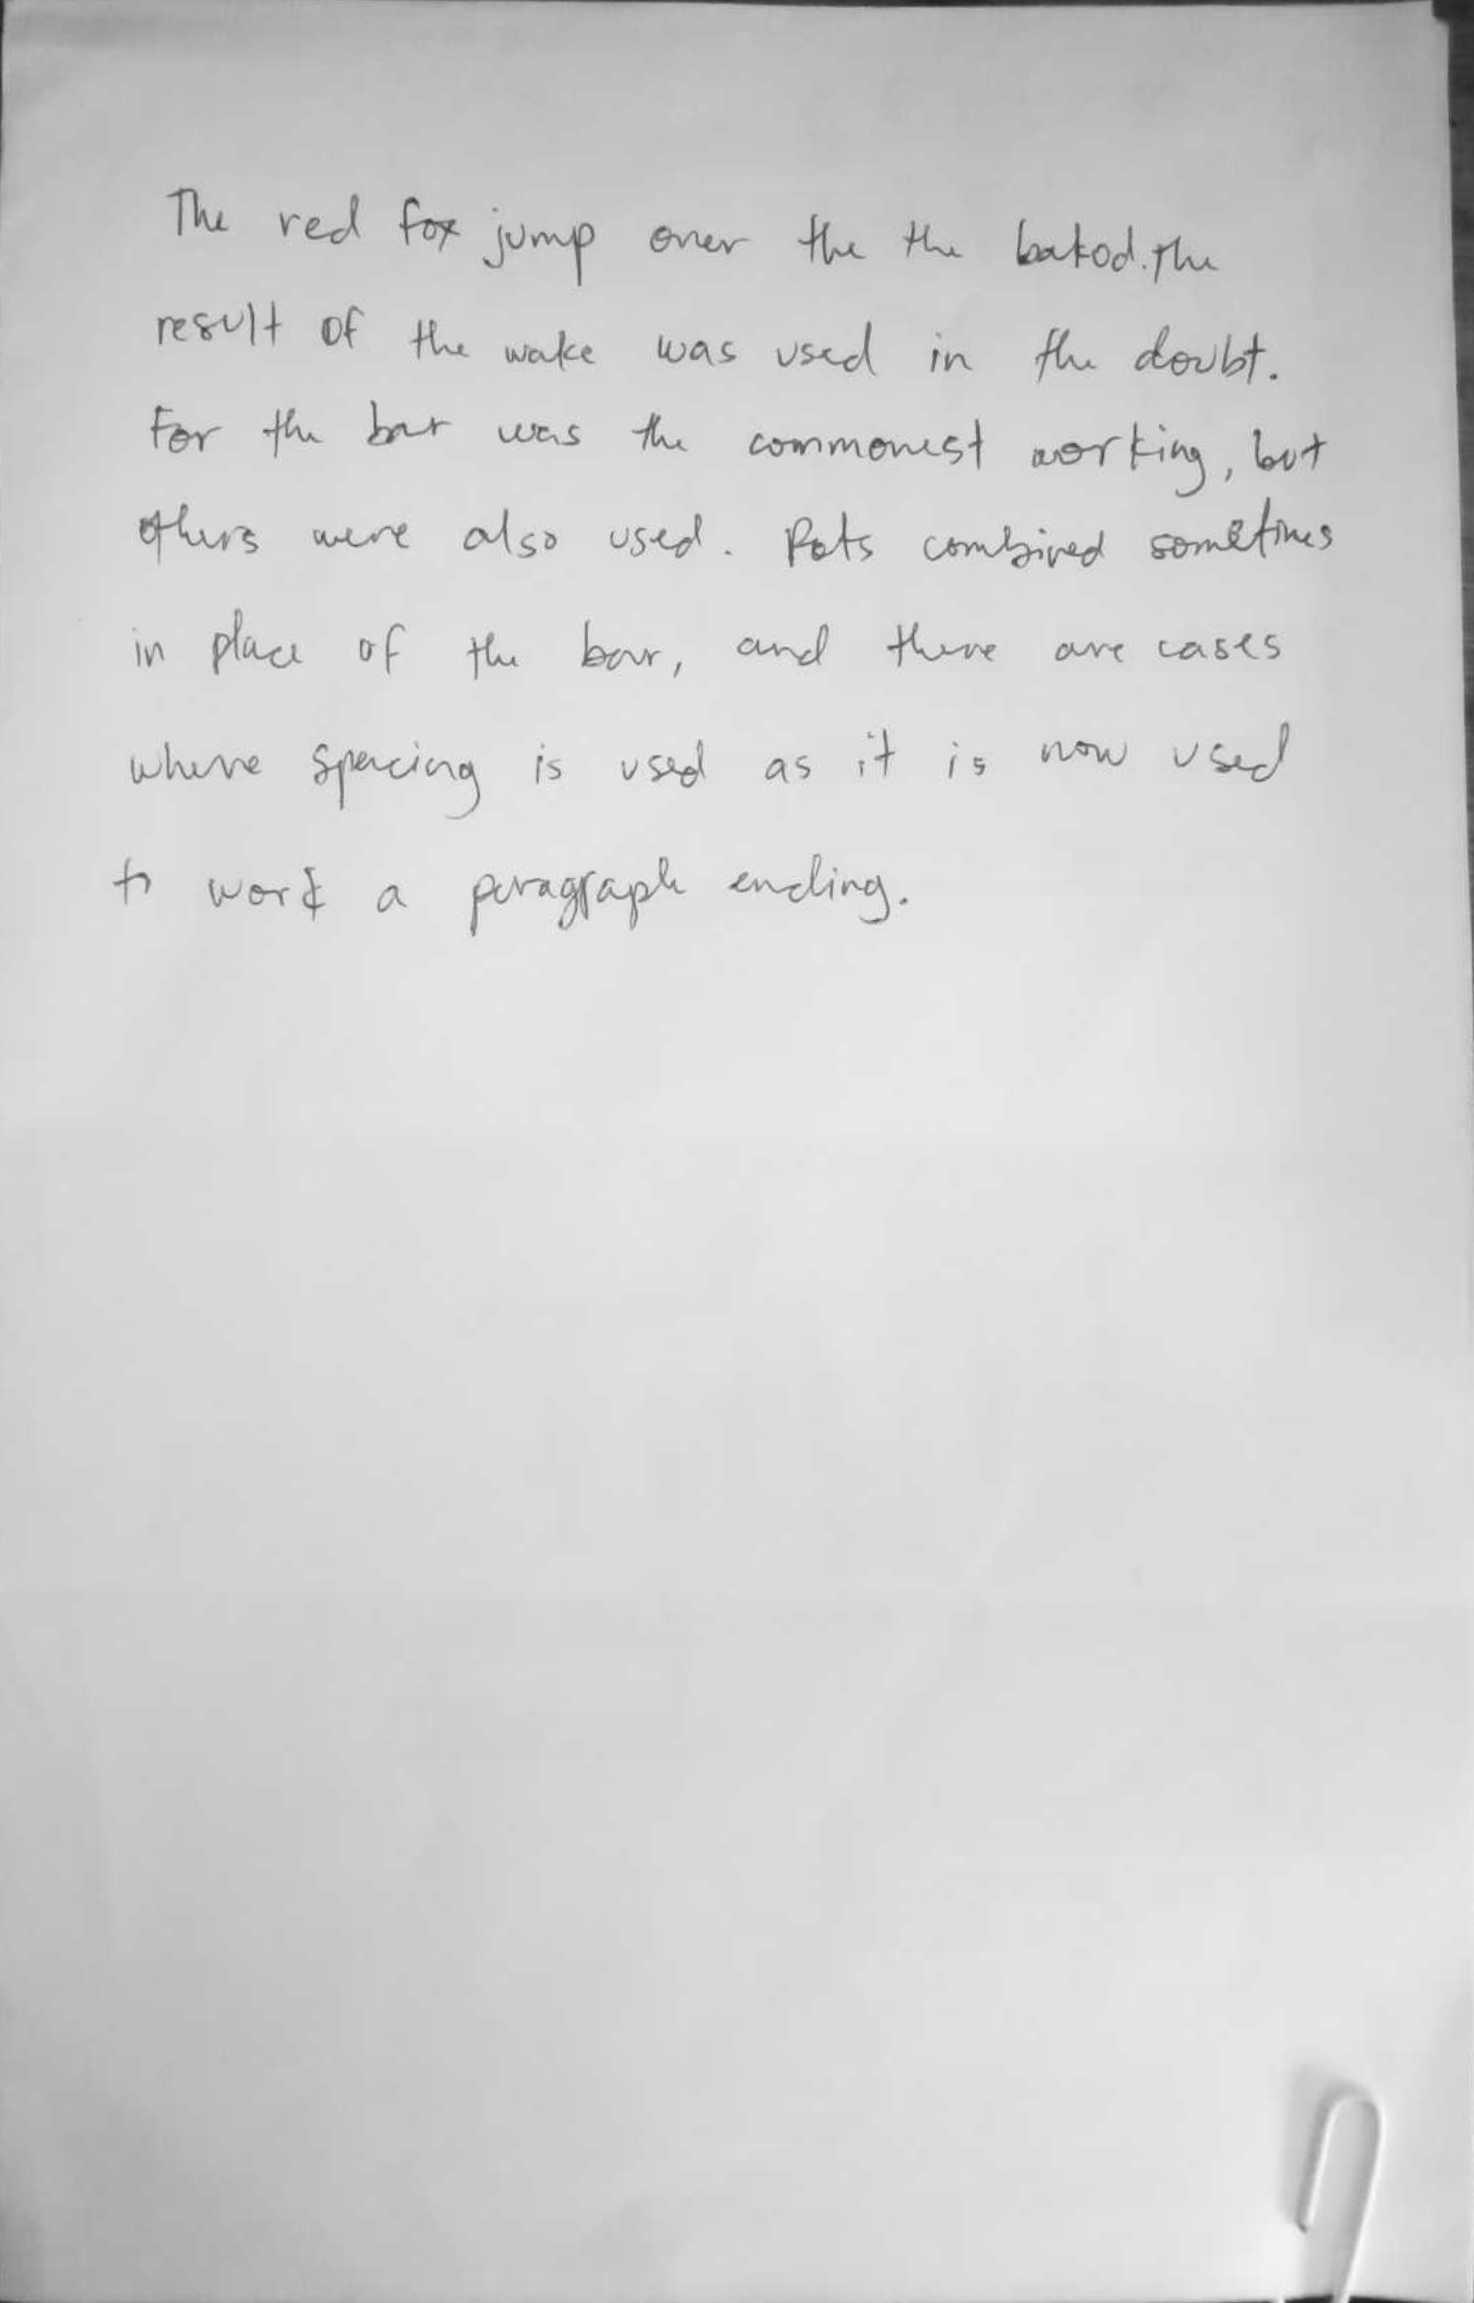 The red fox jump over the the bakod. The
result of the wake was used in the doubt.
For the bar was the commonest working, but
others were also used. Pots combined sometimes
in place of the bar, and there are cases
where spacing is used as it is now used
to work a paragraph ending.